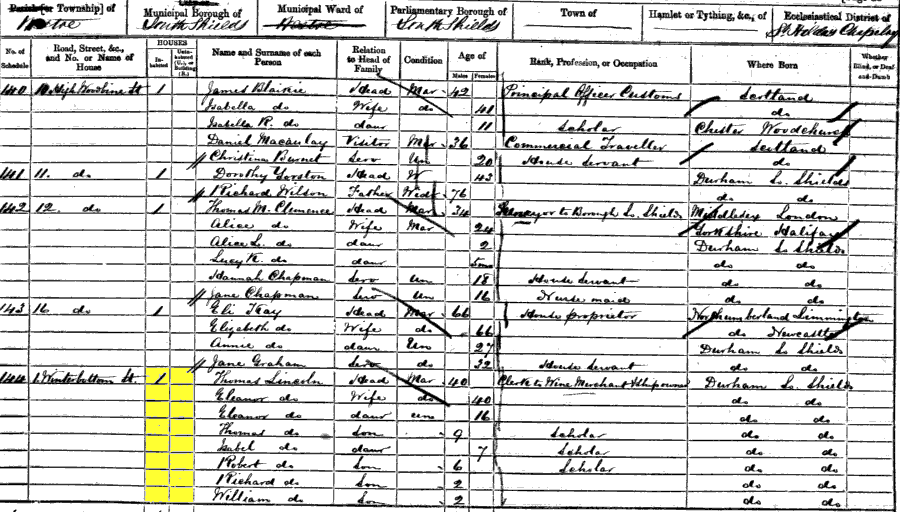 Parish [or Township] of
Municipal Borough of
Municipal Ward of
Parliamentary Borough of
Town of
Hamlet or Tything, &c., of
Ecclesiastical District of
Westoe South Shields Westoe South Shields St Hildas Chapelry
No. of Schedule
Road, Street, &c., and No. or Name of House
HOUSES
Inhabited
Uninhabited (U.), or Building (B.)
Name and Surname of each Person
Relation to Head of Family
Condition
Age of
Males
Females
Rank, Profession, or Occupation
Where Born
Whether Blind, or Deaf-and-Dumb
140 10 High Woodbine St 1 James Blaikie Head Mar 42 Principal Officer Customs Scotland
Isabella do Wife do 41 do
Isabella R. do daur 11 Scholar Chester Woodchurch
Daniel Macaulay Visitor Mar 36 Commercial Traveller Scotland
Christina Burnet Serv Un 20 House Servant do
141 11. do 1 Dorothy Yorston Head W 43 Durham So. Shields
Richard Wilson Father Widr 76 do do
142 12. do 1 Thomas M. Clemence Head Mar 34 Surveyor to Borough So. Shields Middlesex London
Alice do Wife Mar 24 Yorkshire Halifax
Alice L. do daur 2 Durham So Shields
Lucy K. do daur 5mo do do
Hannah Chapman Serv Un 18 House Servant do do
Jane Chapman Serv Un 16 Nurse maid do do
143 16. do 1 Eli Head Mar 66 House proprietor Northumberland
Elizabeth do Wife do 66 do Newcastle
Annie do daur Un 27 Durham So Shields
Jane Graham Serv do 32 House Servant do do
144 1. Winterbottom St. 1 Thomas Lincoln Head Mar 40 Clerk to Wine Merchant & Shipowner Durham So. Shields
Eleanor do Wife do 40 do do
Eleanor do daur Un 16 do do
Thomas do Son 9 Scholar do do
Isabel do daur 7 Scholar do do
Robert do Son 6 Scholar do do
Richard do Son 2 do do
William do Son 2 do do